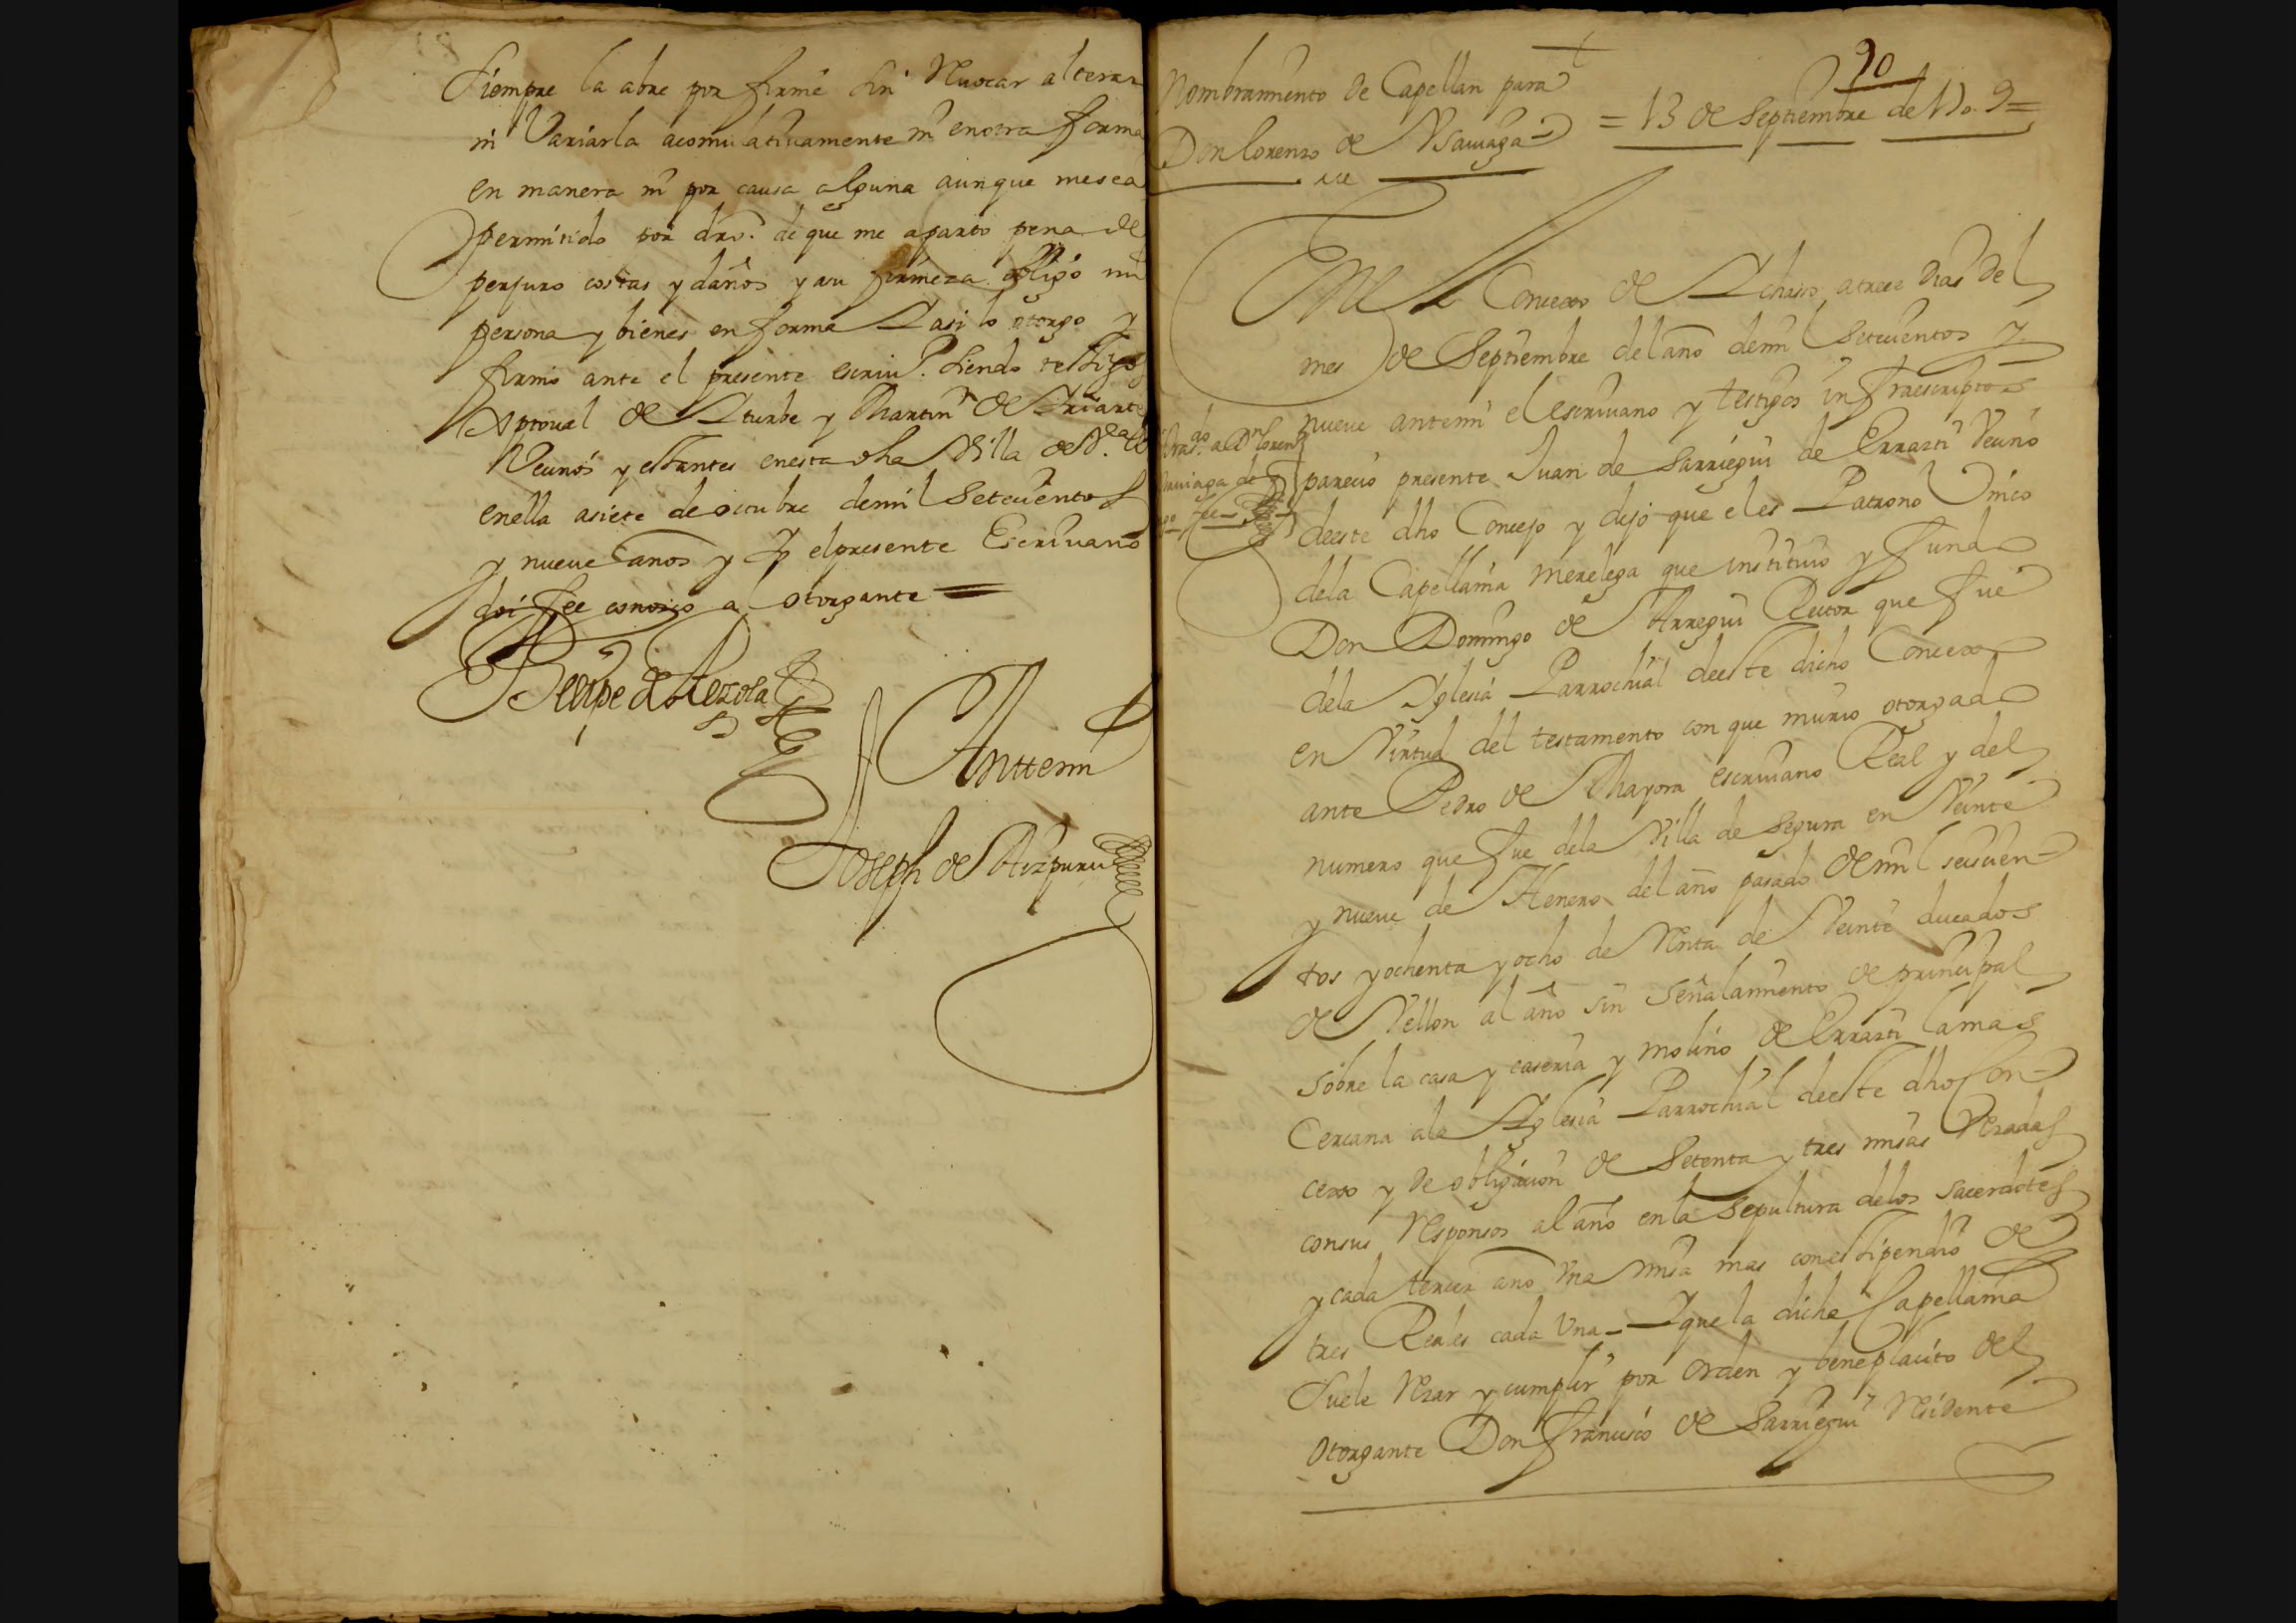 Siempre la abre por firme sin Reuocar alterar
ni Variarla acomulatiuamente ni enotra forma
en manera ni por causa alguna aunque mesea
permitido por dro. de que me aparto pena de
perjuro costas y daños y asu firmeza obligo mi
persona y bienes en forma Y asi lo otorgo y
firmo ante el presente escriu.º siendo testigos
de Yturbe y Martin de Yriarte
Vecinos y estantes enesta dha Villa de
enella asiete de octubre demil Setecientos
y nueve años y Yo elpresente Escriuano
doi fee conozco al otorgante =
Felipe de Aezola
Anttemi
Joseph de Aizpuru
90
Nombramiento de Capellan para
Don Lorenzo de Ysauaga
= 13 de Septiembre de 170.9=
En el Concexo de Ychaso atrece dias del
mes de Septiembre del año demil Setecientos y
nueve antemi el escriuano y testigos infraescriptos
parecio presente Juan de Sarriegui de Errazti Vecino
deeste dho Concejo y dijo que el es Patrono Vnico
dela Capellania merelega que instituio y fundo
Don Domingo de Arregui Rector que fue
dela Yglesia Parrochial deeste dicho Concexo
en Virtud del testamento con que murio otorgado
ante Pedro de Mayora escriuano Real y del
numero que fue dela Villa de Segura en Veinte
y nueve de Henero del año pasado de mil seiscien-
tos y ochenta y ocho de Renta de Veinte ducados
de Vellon al año sin señalamiento de principal
sobre la casa y caseria y molino de Errazti lamas
Cercana ala Yglesia Parrochial deeste dho Con-
cexo y de obligacion de Setenta y tres misas Rezadas
consus Responsos al año enla Sepultura delos Sacerdotes
y cada tercer año Vna misa mas conestipendio de
tres Reales cada Vna - Y que la dicha Capellania
Suele Rezar y cumplir por orden y beneplacito del
Otorgante Don Francisco de Sarriegui Residente